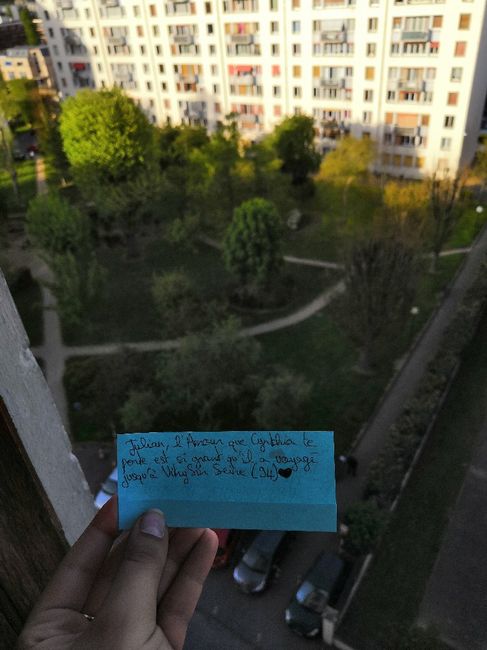 Julian, l'Amour que Cynthia te
porte est si grand qu'il a voyagé
jusqu'à Vitry Sur Seine (94)♥